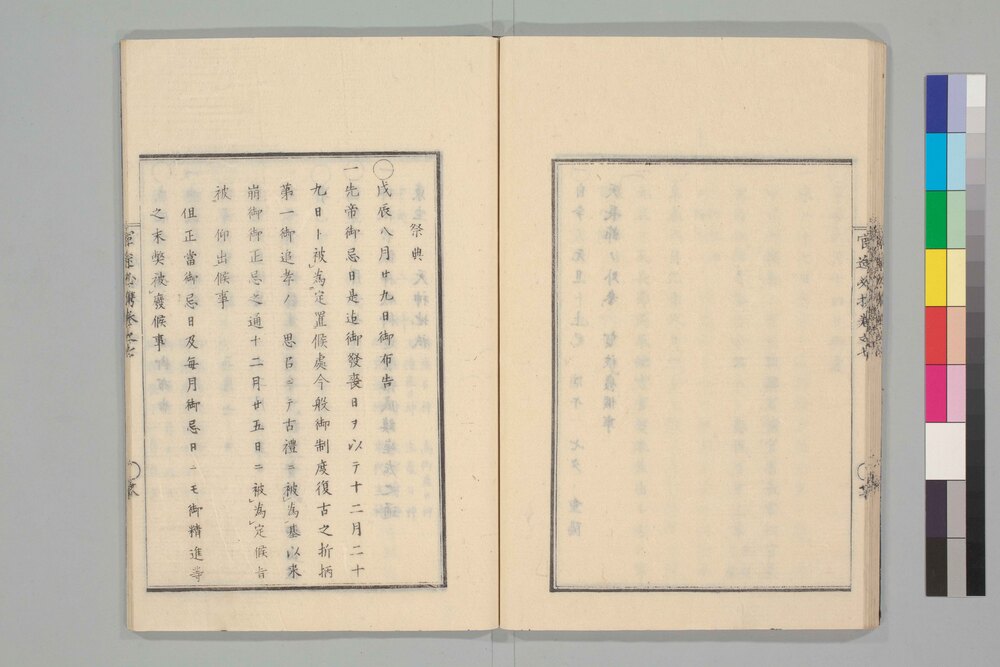 祭典
戊辰八月廿九日御布告
一先帝御忌日是迄御發喪日ヲ以テ十二月二十
九日ト被爲定置候處今般御制度復古之折柄
第一御追孝ノ思召ニテ古禮ニ被爲基以来
崩御御正忌之通十二月廿五日ニ被爲定候旨
被仰出候事
但正當御忌日及每月御忌日ニモ御精進等
之末弊被廢候事